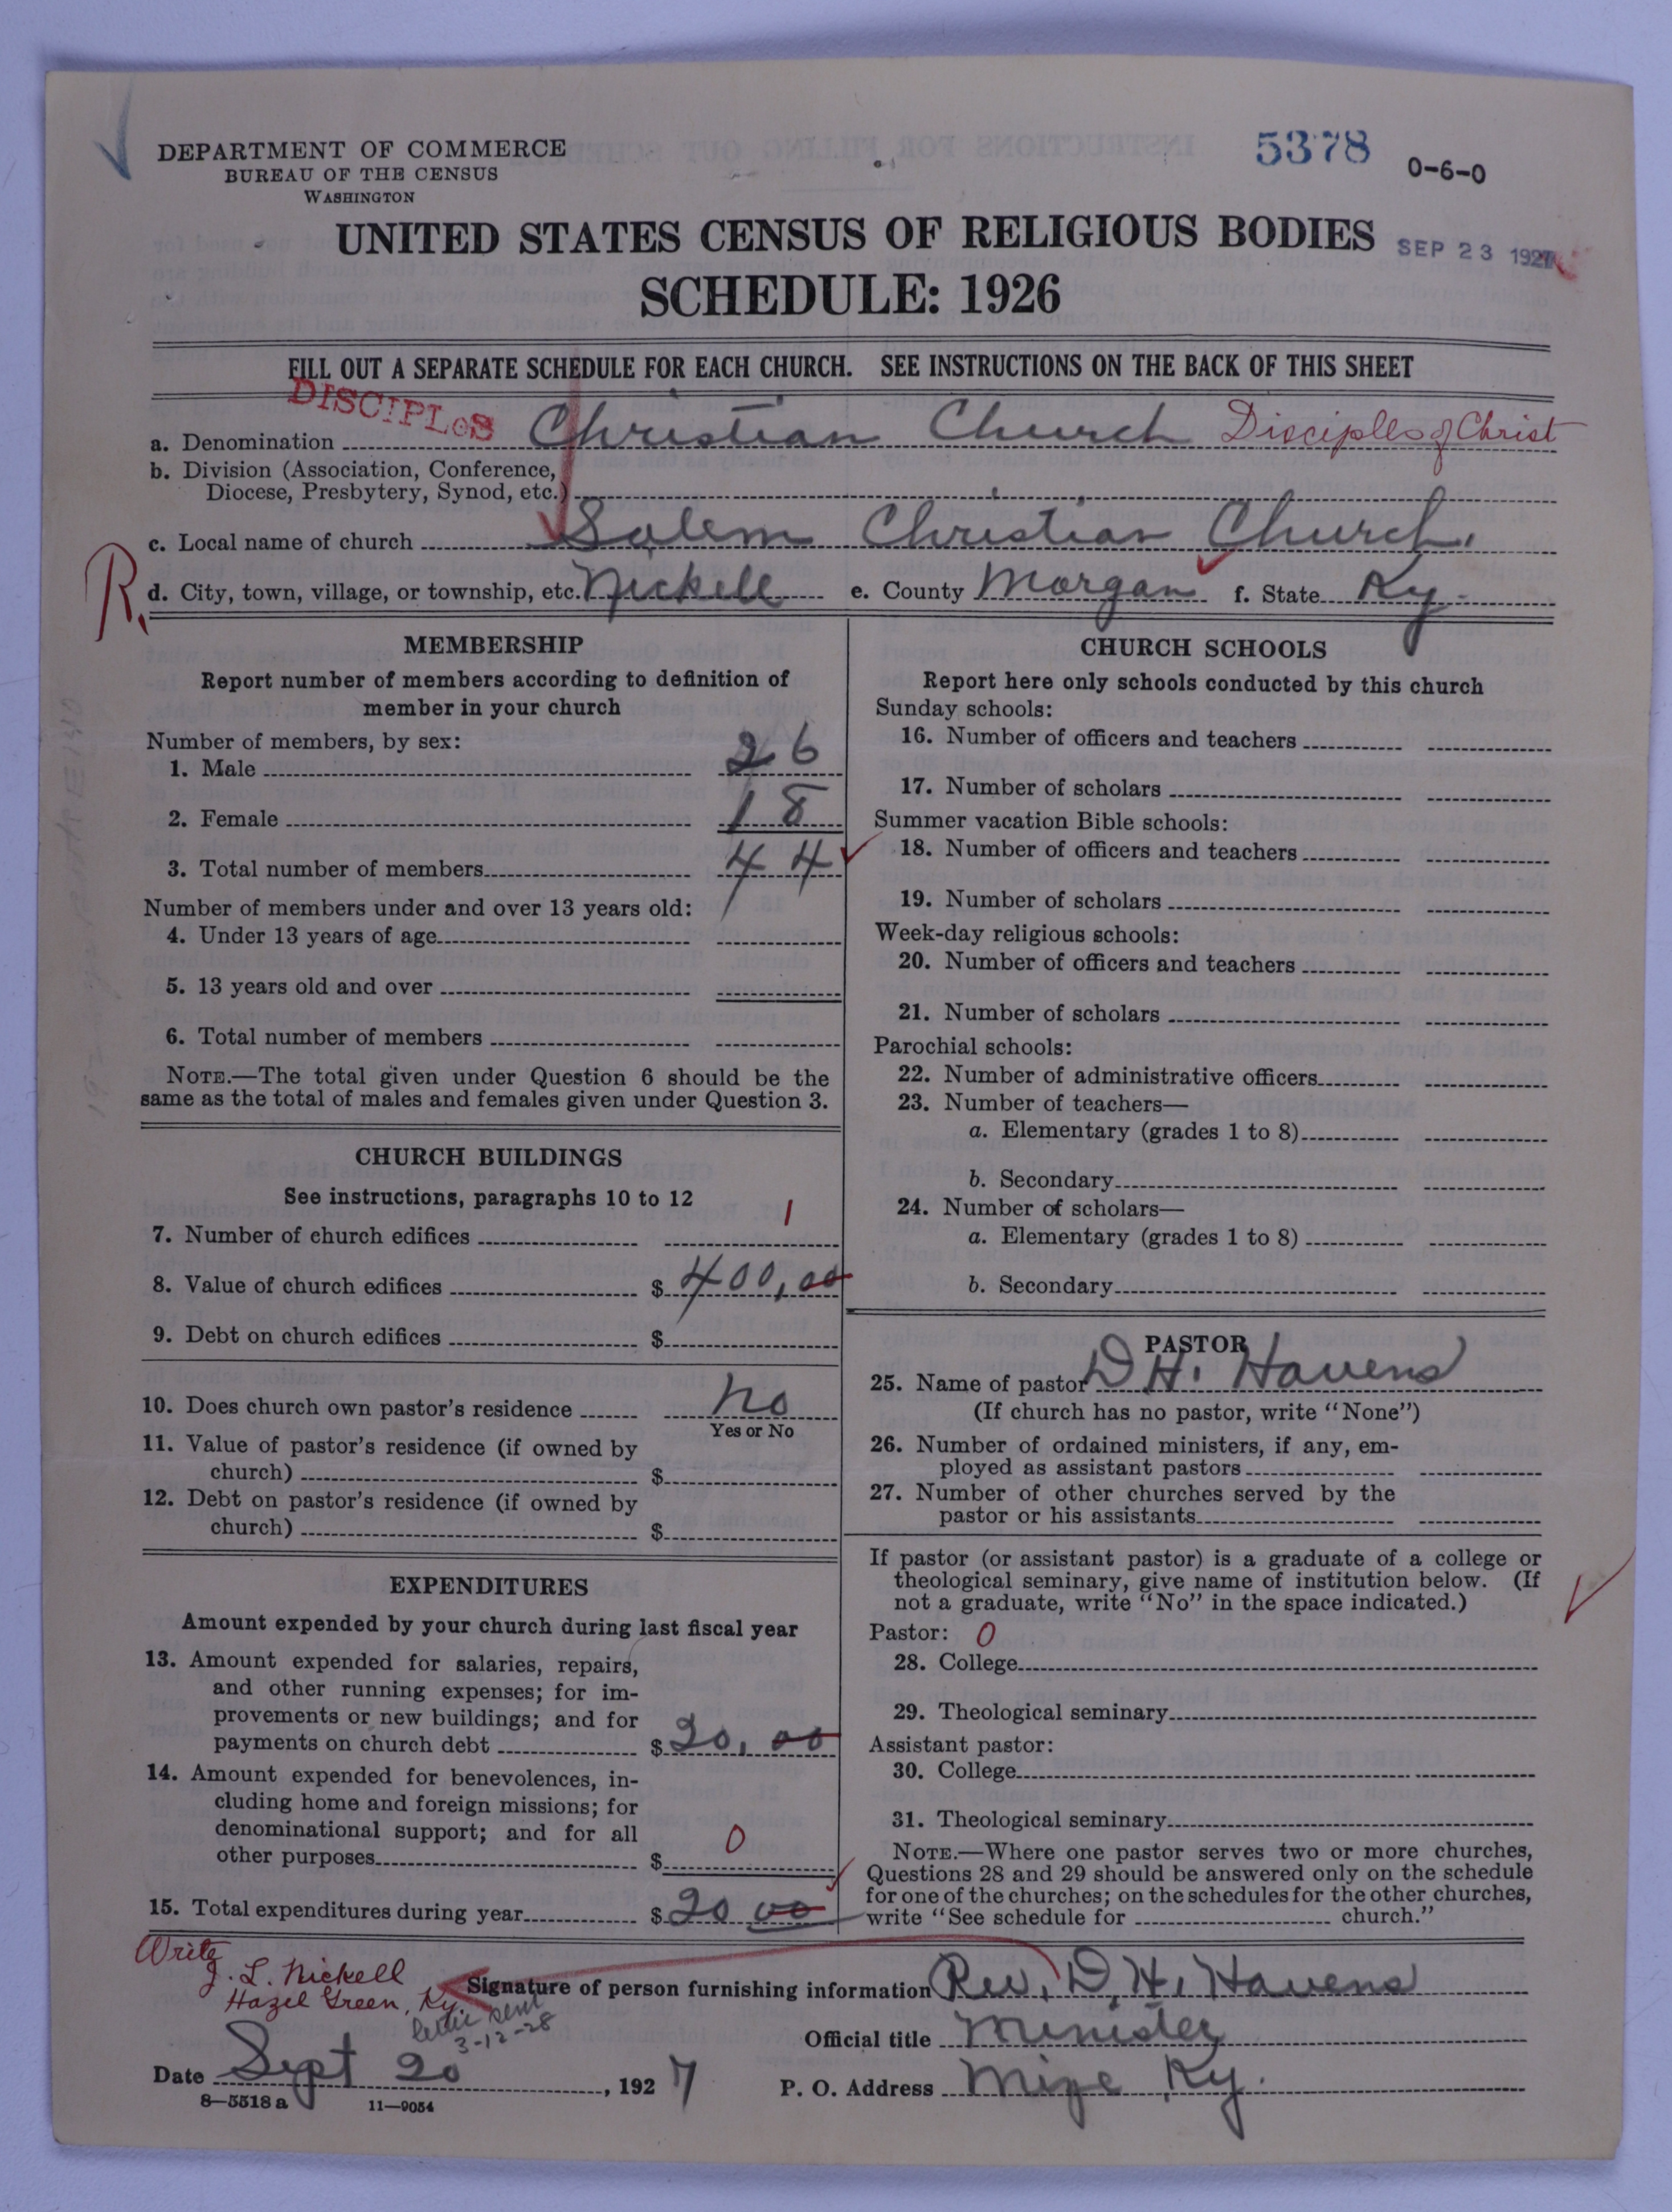 DEPARTMENT OF COMMERCE
BUREAU OF THE CENSUS
WASHINGTON
5378
0-6-0
UNITED STATES CENSUS OF RELIGIOUS BODIES
SEP 23 1927
SCHEDULE: 1926
FILL OUT A SEPARATE SCHEDULE FOR EACH CHURCH. SEE INSTRUCTIONS ON THE BACK OF THIS SHEET
DISCIPLES
a. Denomination Christian Church Disciples of Christ
b. Division (Association, Conference,
Diocese, Presbytery, Synod, etc.)
c. Local name of church Salem Christian Church.
R.
d. City, town, village, or township, etc. Nickell e. County Morgan f. State Ky.
MEMBERSHIP
Report number of members according to definition of
member in your church
Number of members, by sex:
1. Male 26
2. Female 18
3. Total number of members 44
Number of members under and over 13 years old:
4. Under 13 years of age
5. 13 years old and over
6. Total number of members
NOTE.—The total given under Question 6 should be the
same as the total of males and females given under Question 3.
CHURCH BUILDINGS
See instructions, paragraphs 10 to 12
7. Number of church edifices 1
8. Value of church edifices $400,00
9. Debt on church edifices $
10. Does church own pastor's residence No
Yes or No
11. Value of pastor's residence (if owned by
church) $
12. Debt on pastor's residence (if owned by
church) $
EXPENDITURES
Amount expended by your church during last fiscal year
13. Amount expended for salaries, repairs,
and other running expenses; for im-
provements or new buildings; and for
payments on church debt $20,00
14. Amount expended for benevolences, in-
cluding home and foreign missions; for
denominational support; and for all
other purposes $ 0
15. Total expenditures during year $20 00
CHURCH SCHOOLS
Report here only schools conducted by this church
Sunday schools:
16. Number of officers and teachers
17. Number of scholars
Summer vacation Bible schools:
18. Number of officers and teachers
19. Number of scholars
Week-day religious schools:
20. Number of officers and teachers
21. Number of scholars
Parochial schools:
22. Number of administrative officers
23. Number of teachers—
a. Elementary (grades 1 to 8)
b. Secondary
24. Number of scholars—
a. Elementary (grades 1 to 8)
b. Secondary
PASTOR
25. Name of pastor D H. Havens
(If church has no pastor, write "None")
26. Number of ordained ministers, if any, em-
ployed as assistant pastors
27. Number of other churches served by the
pastor or his assistants
If pastor (or assistant pastor) is a graduate of a college or
theological seminary, give name of institution below. (If
not a graduate, write "No" in the space indicated.)
Pastor: 0
28. College
29. Theological seminary
Assistant pastor:
30. College
31. Theological seminary
NOTE.—Where one pastor serves two or more churches,
Questions 28 and 29 should be answered only on the schedule
for one of the churches; on the schedules for the other churches,
write "See schedule for church."
Write
J. L. Nickell
Hazel Green, Ky.
letter sent
3-12-28
Signature of person furnishing information Rev, D, H, Havens
Official title Minister
Date Sept 20, 1927
P. O. Address Mize Ky.
8—5518 a 11—9054